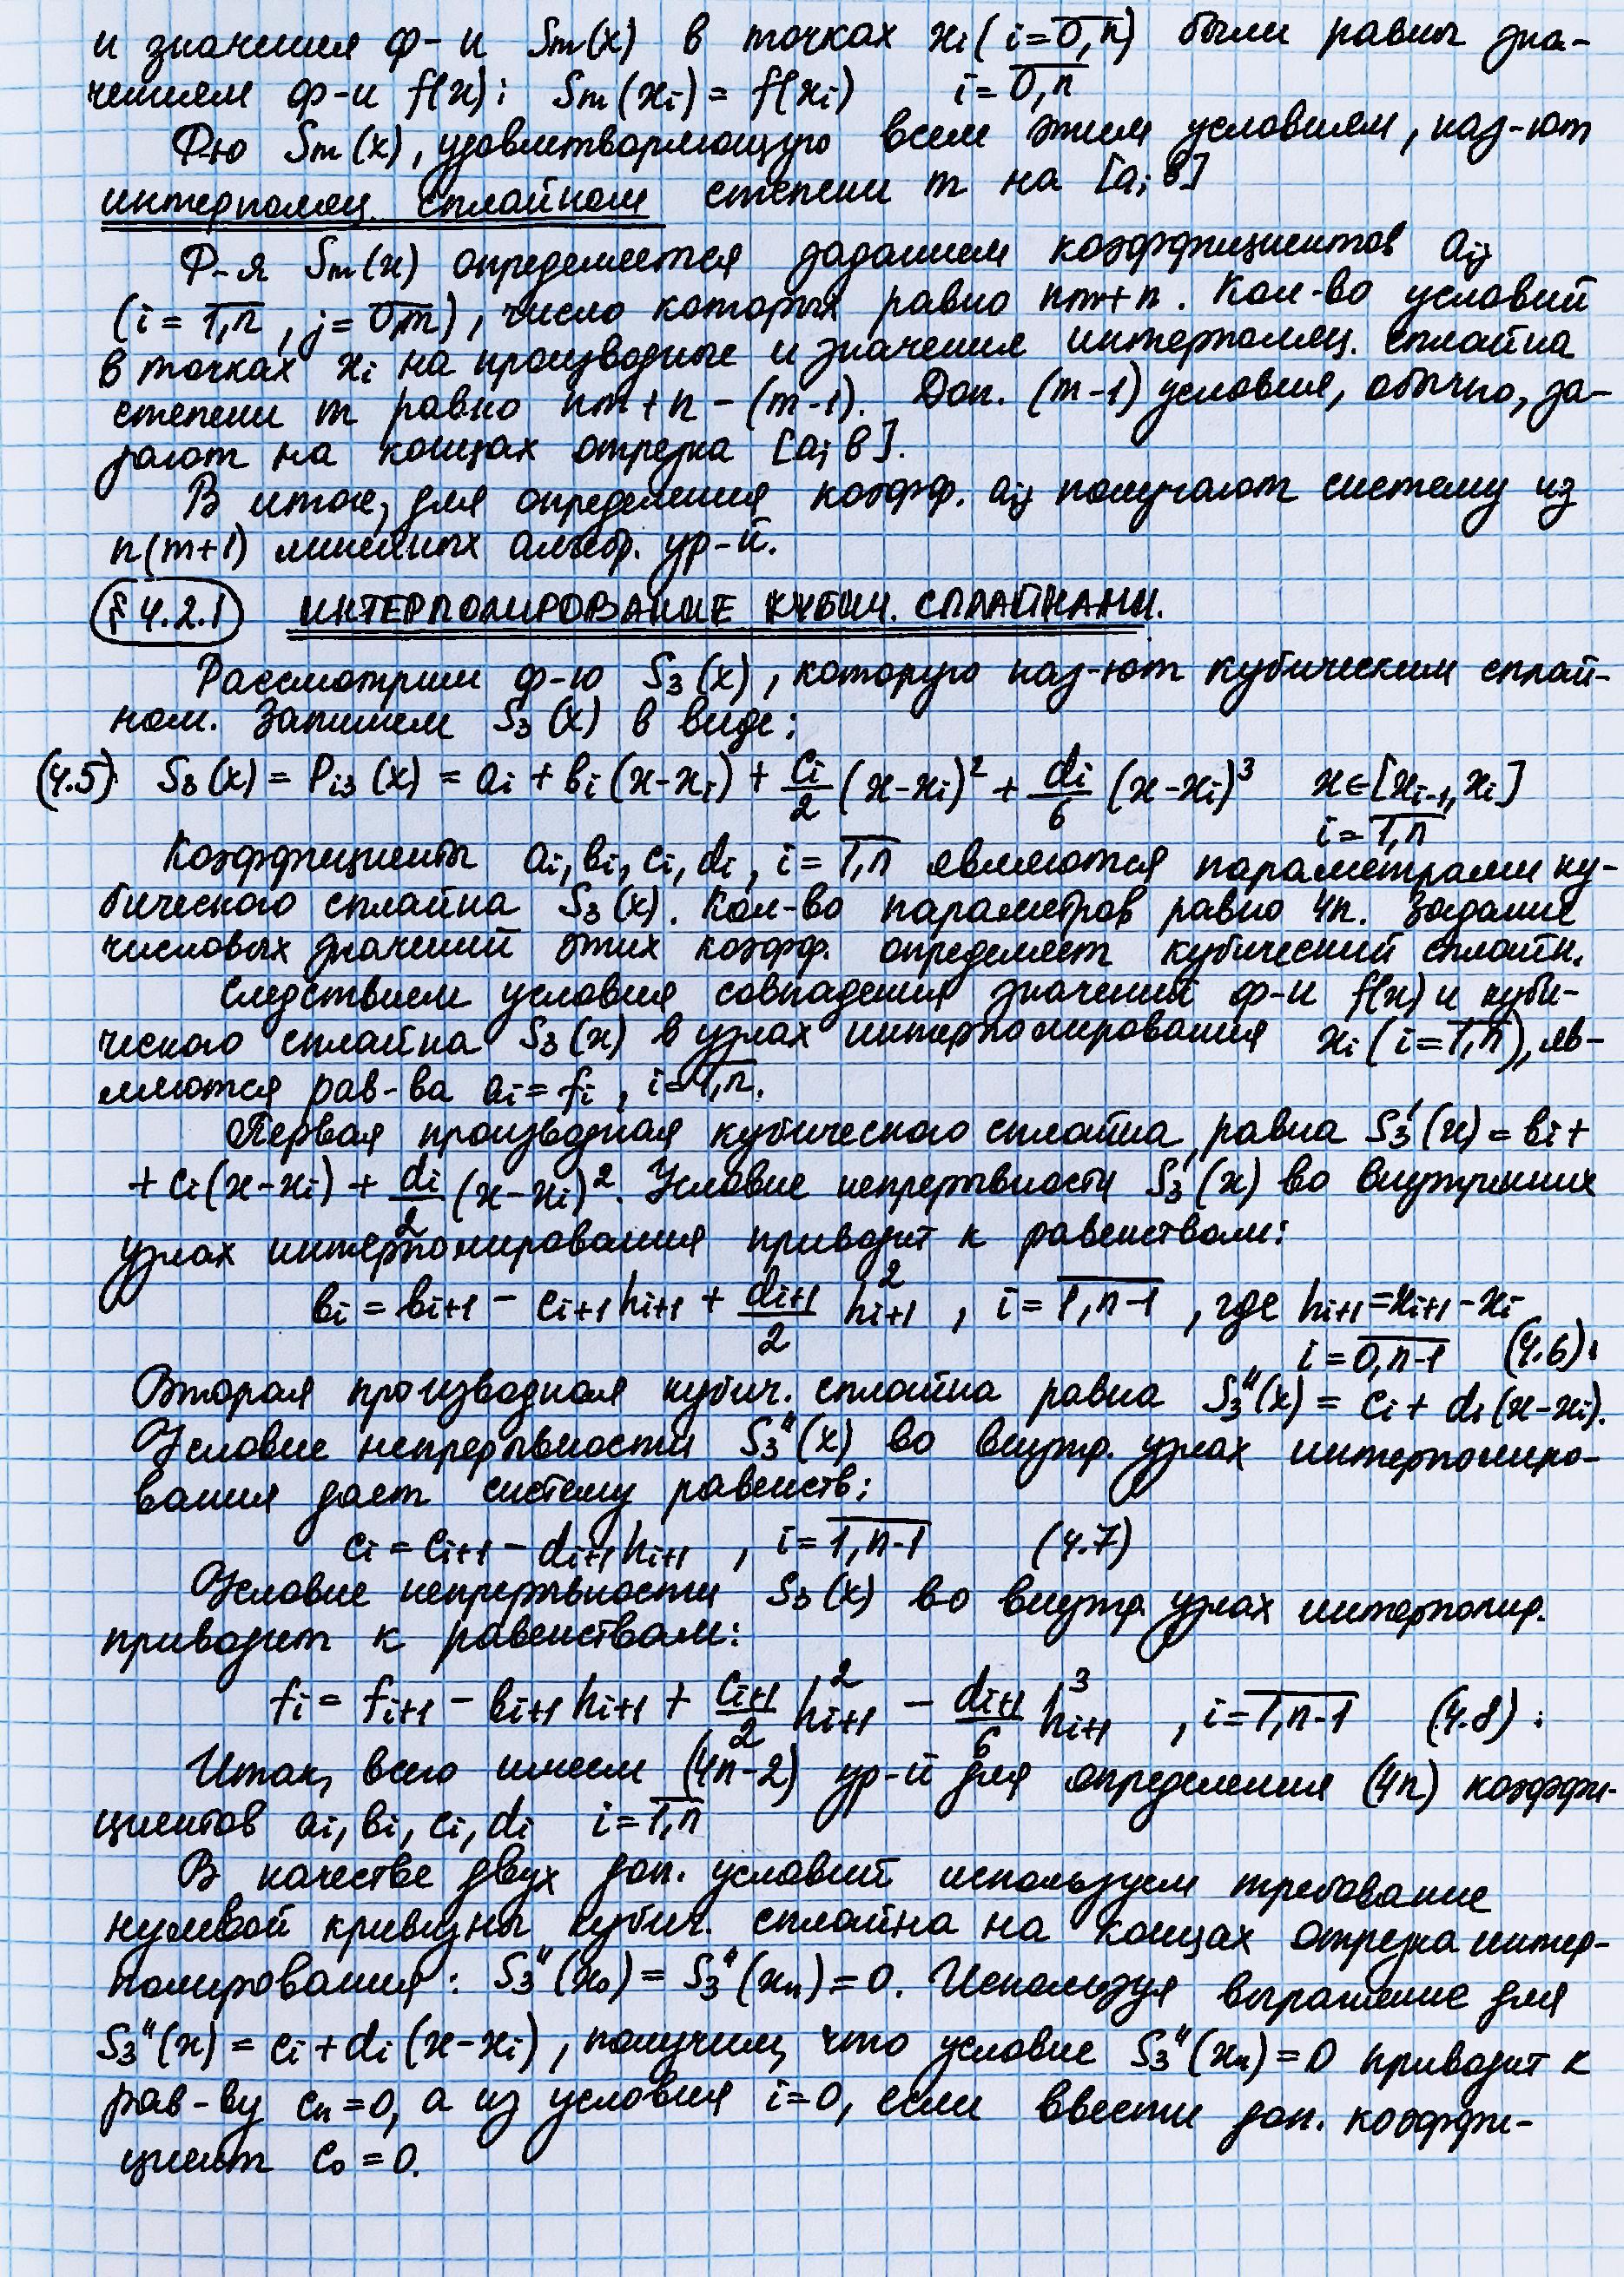 и значения ф-и Sm(x) в точках xi (i=0,n) были равны зна-
чениям ф-и f(x): Sm(xi) = f(xi) i=0,n
Ф-ю Sm(x), удовлетворяющую всем этим условиям, наз-ют
интерполяц. сплайном степени m на [a; b]
Ф-я Sm(x) определяется заданием коэффициентов aij
(i=1,n, j=0,m), число которых равно nm+n. Кол-во условий
в точках xi на производные и значения интерполяц. сплайна
степени m равно nm+n-(m-1). Доп. (m-1) условия, обычно, за-
дают на концах отрезка [a; b].
В итоге, для определения коэфф. aij получают систему из
n(m+1) линейных алгебр. ур-й.
§ 4.2.1 ИНТЕРПОЛИРОВАНИЕ КУБИЧ. СПЛАЙНАМИ.
Рассмотрим ф-ю S3(x), которую наз-ют кубическим сплай-
ном. Запишем S3(x) в виде:
(4.5) S3(x) = Pi3(x) = ai + bi(x-xi) + ci/2 (x-xi)² + di/6 (x-xi)³ x∈[xi-1, xi]
i=1,n
Коэффициенты ai, bi, ci, di, i=1,n являются параметрами ку-
бического сплайна S3(x). Кол-во параметров равно 4n. Задание
числовых значений этих коэфф. определяет кубический сплайн.
Следствием условия совпадения значений ф-и f(x) и куби-
ческого сплайна S3(x) в узлах интерполирования xi (i=1,n), яв-
ляются рав-ва ai = fi, i=1,n.
Первая производная кубического сплайна равна S3'(x) = bi+
+ ci(x-xi) + di/2 (x-xi)². Условие непрерывности S3'(x) во внутренних
узлах интерполирования приводит к равенствам:
bi = bi+1 - ci+1 hi+1 + di+1/2 h²i+1, i=1,n-1, где hi+1 = xi+1 - xi
i=0,n-1 (4.6).
Вторая производная кубич. сплайна равна S3''(x) = ci + di(x-xi).
Условие непрерывности S3''(x) во внутр. узлах интерполиро-
вания дает систему равенств:
ci = ci+1 - di+1 hi+1, i=1,n-1 (4.7)
Условие непрерывности S3(x) во внутр. узлах интерполир.
приводит к равенствам:
fi = fi+1 - bi+1 hi+1 + ci+1/2 h²i+1 - di+1/6 h³i+1, i=1,n-1 (4.8).
Итак, всего имеем (4n-2) ур-й для определения (4n) коэффи-
циентов ai, bi, ci, di i=1,n
В качестве двух доп. условий используем требование
нулевой кривизны кубич. сплайна на концах отрезка интер-
полирования: S3''(x0) = S3''(xn) = 0. Используя выражение для
S3''(x) = ci + di(x-xi), получим, что условие S3''(xn) = 0 приводит к
рав-ву cn=0, а из условия i=0, если ввести доп. коэффи-
циент c0=0.